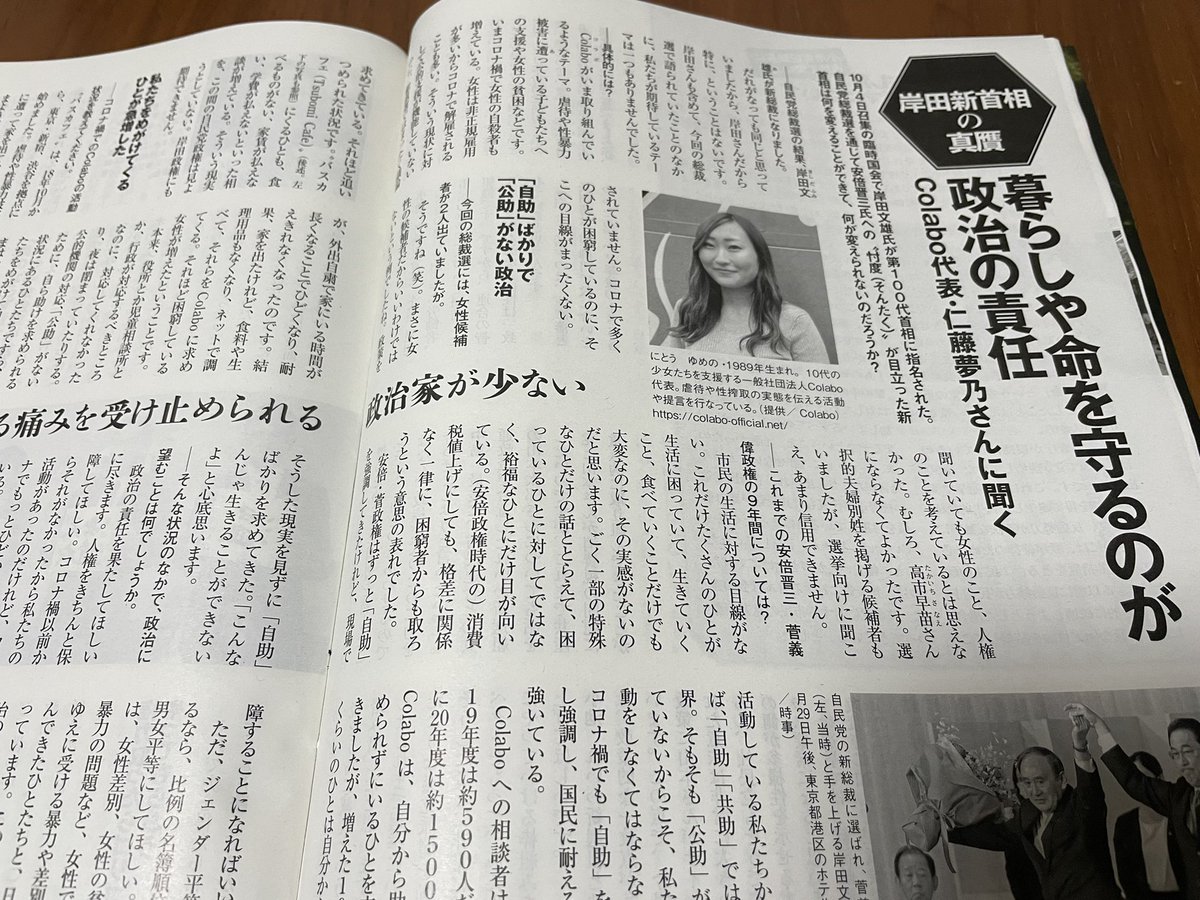 岸田新首相
の
真贋
暮らしや命を守るのが
政治の責任
Colabo代表・仁藤夢乃さんに聞く
10月4日召集の臨時国会で岸田文雄氏が第100代首相に指名された。
自民党総裁選を通じて安倍晋三氏への“忖度（そんたく）”が目立った新
首相は何を変えることができて、何が変えられないのだろうか？
――自民党総裁選の結果、岸田文
雄氏が新総裁になりました。
特に、ということはないです。
だれがなっても同じと思って
いましたから。岸田さんだから
岸田さんも含めて、今回の総裁
選で語られていたことのなか
に、私たちが期待しているテー
マは一つもありませんでした。
――具体的には？
Colaboがいま取り組んでい
るようなテーマ。虐待や性暴力
被害に遭っている子どもたちへ
の支援や女性の貧困などです。
いまコロナ禍で女性の自殺者も
増えている。女性は非正規雇用
が多いからコロナで解雇される
ことも多い。そういう現状に対
されていません。コロナで多く
のひとが困窮しているのに、そ
こへの目線がまったくない。
「自助」ばかりで
「公助」がない政治
――今回の総裁選には、女性候補
者が2人出ていましたが。
そうですね（笑）。まさに女
性の候補者だからいいわけでは
にとう ゆめの・1989年生まれ。10代の
少女たちを支援する一般社団法人Colabo
代表。虐待や性搾取の実態を伝える活動
や提言を行なっている。（提供／Colabo）
https://colabo-official.net/
聞いていても女性のこと、人権
のことを考えているとは思えな
かった。むしろ、高市早苗さん
にならなくてよかったです。選
択的夫婦別姓を掲げる候補者も
いましたが、選挙向けに聞こ
え、あまり信用できません。
――これまでの安倍晋三・菅義
偉政権の9年間については？
市民の生活に対する目線がな
い。これだけたくさんのひとが
生活に困っていて、生きていく
こと、食べていくことだけでも
大変なのに、その実感がないの
だと思います。ごく一部の特殊
なひとだけの話ととらえて、困
っているひとに対してではな
く、裕福なひとにだけ目が向い
ている。（安倍政権時代の）消費
税値上げにしても、格差に関係
なく一律に、困窮者からも取ろ
うという意思の表れでした。
安倍・菅政権はずっと「自助」
を強調してきたけれど、現場で
自民党の新総裁に選ばれ、菅
（左、当時）と手を上げる岸田文
月29日午後、東京都港区のホテ
／時事）
活動している私たちか
ば、「自助」「共助」では
界。そもそも「公助」が
ていないからこそ、私た
動をしなくてはならな
コロナ禍でも「自助」を
し強調し、国民に耐える
強いている。
Colaboへの相談者は
19年度は約590人だ
に20年度は約1500
Colaboは、自分から助
められずにいるひとを
きましたが、増えた1
くらいのひとは自分か
政治家が少ない
る痛みを受け止められる
求めてきている。それほど追い
つめられた状況です。バスカ
フェ「Tsubomi Cafe」（後述。左
にくるひとも、食
べるものがない、家賃が払えな
い、学費が払えないといった相
談が増えている。そういう現実
を、この間の自民党政権は見よ
うとしていない。岸田政権にも
期待はできません。
私たちをめがけてくる
ひとが急増した
が、外出自粛で家にいる時間が
長くなることでひどくなり、耐
えきれなくなったのです。結
果、家を出たけれど、食料や生
理用品もなくなり、ネットで調
べて、それらをColaboに求め
てくる。それほど困窮している
女性が増えたということです。
本来、役所とか児童相談所と
か、行政が対応するべきところ
なのに、対応してくれなかった
り、夜は閉まっていたりする。
公的機関の対応、「公助」がない
ために、自ら助けを求められる
状況にあるひとたちですら、私
たちをめがけて
そうした現実を見ずに「自助」
ばかりを求めてきた。「こんな
んじゃ生きることができない
よ」と心底思います。
――そんな状況のなかで、政治に
望むことは何でしょうか。
政治の責任を果たしてほしい
に尽きます。人権をきちんと保
障してほしい。コロナ禍以前か
らそれがなかったから私たちの
活動があったのだけれど、コロ
ナでもっとひど
障することになればいい
ただ、ジェンダー平等
るなら、比例の名簿順位
男女平等にしてほしい。
は、女性差別、女性の貧
暴力の問題など、女性で
ゆえに受ける暴力や差別
んできたひとたちと、日
っています。